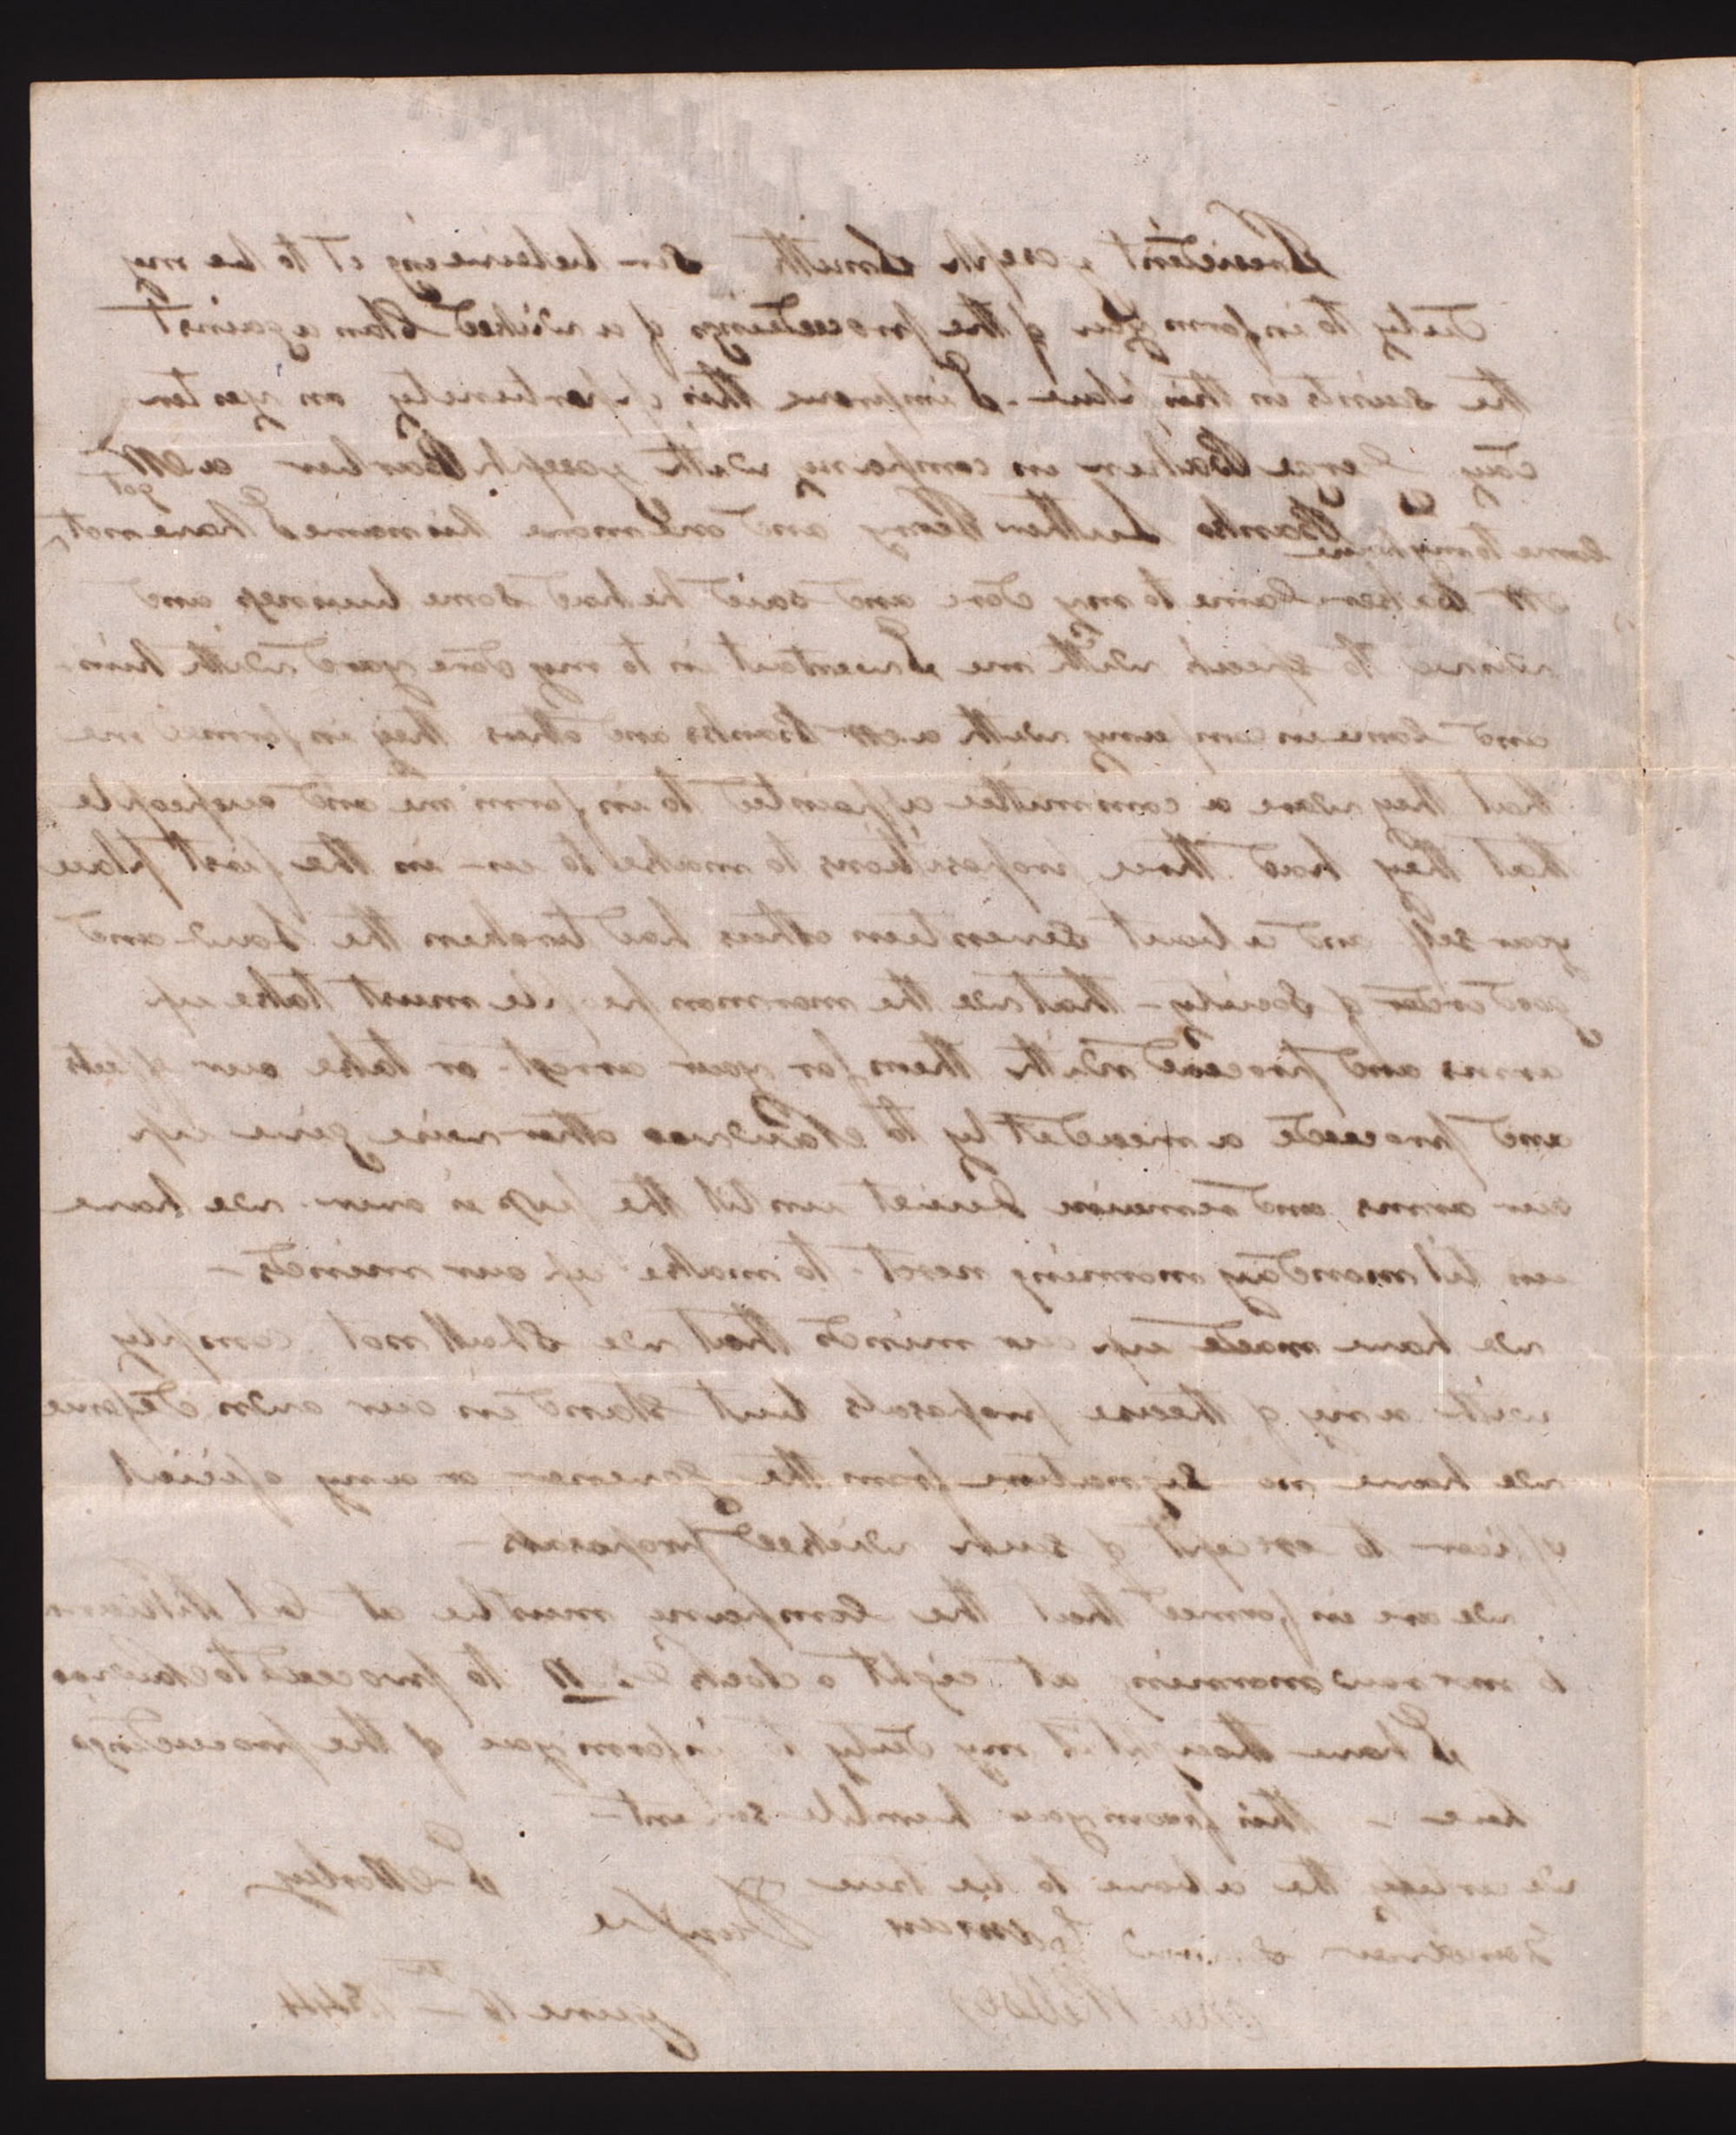 President Joseph Smith Sir— beleiveing it to be my
duty to inform you of the proceedings of a wicked Clan against
the saints in this place. I improve this opportunity on yester
day Jerge Backer in company with Joseph Barber a Mr
Banks Luther Perry and one more his name I have not
got
Came to my house
Mr Backer Came to my dore and said he had some buisness and
wisned to speak with me I went out in to my dore yard with him
and Came in company with a Mr Banks and others they informed me
that they ware a committee appointed to inform me and our people
that they had three propositions to make to us— in the first place
your self and about seventeen others had broken the Law and
good order of Society— that we the mormon people must take up
arms and proceed with them for your arrest— or take our effects
and proceede ameadetly to Nauvoo otherwise give up
our arms and remain Quiet until the fuss is over— we have
until monday morning next— to make up our minds—
we have made up our minds that we Shall not comply
with any of theese proposals but stand in our own defence
we have no signature from the Govener or any officiel
officer to except of such wicked proposals—
we are informed that the Company must be at Col Williams
to morrow morning at eight o clock to proceed to Nauvoo
I have thought it my duty to inform you of the proceedings
here— this from your humble servent—
I Morley
we certify the above to be true
Gardner Snow
Edmun Durfee
June 16 th— 1844